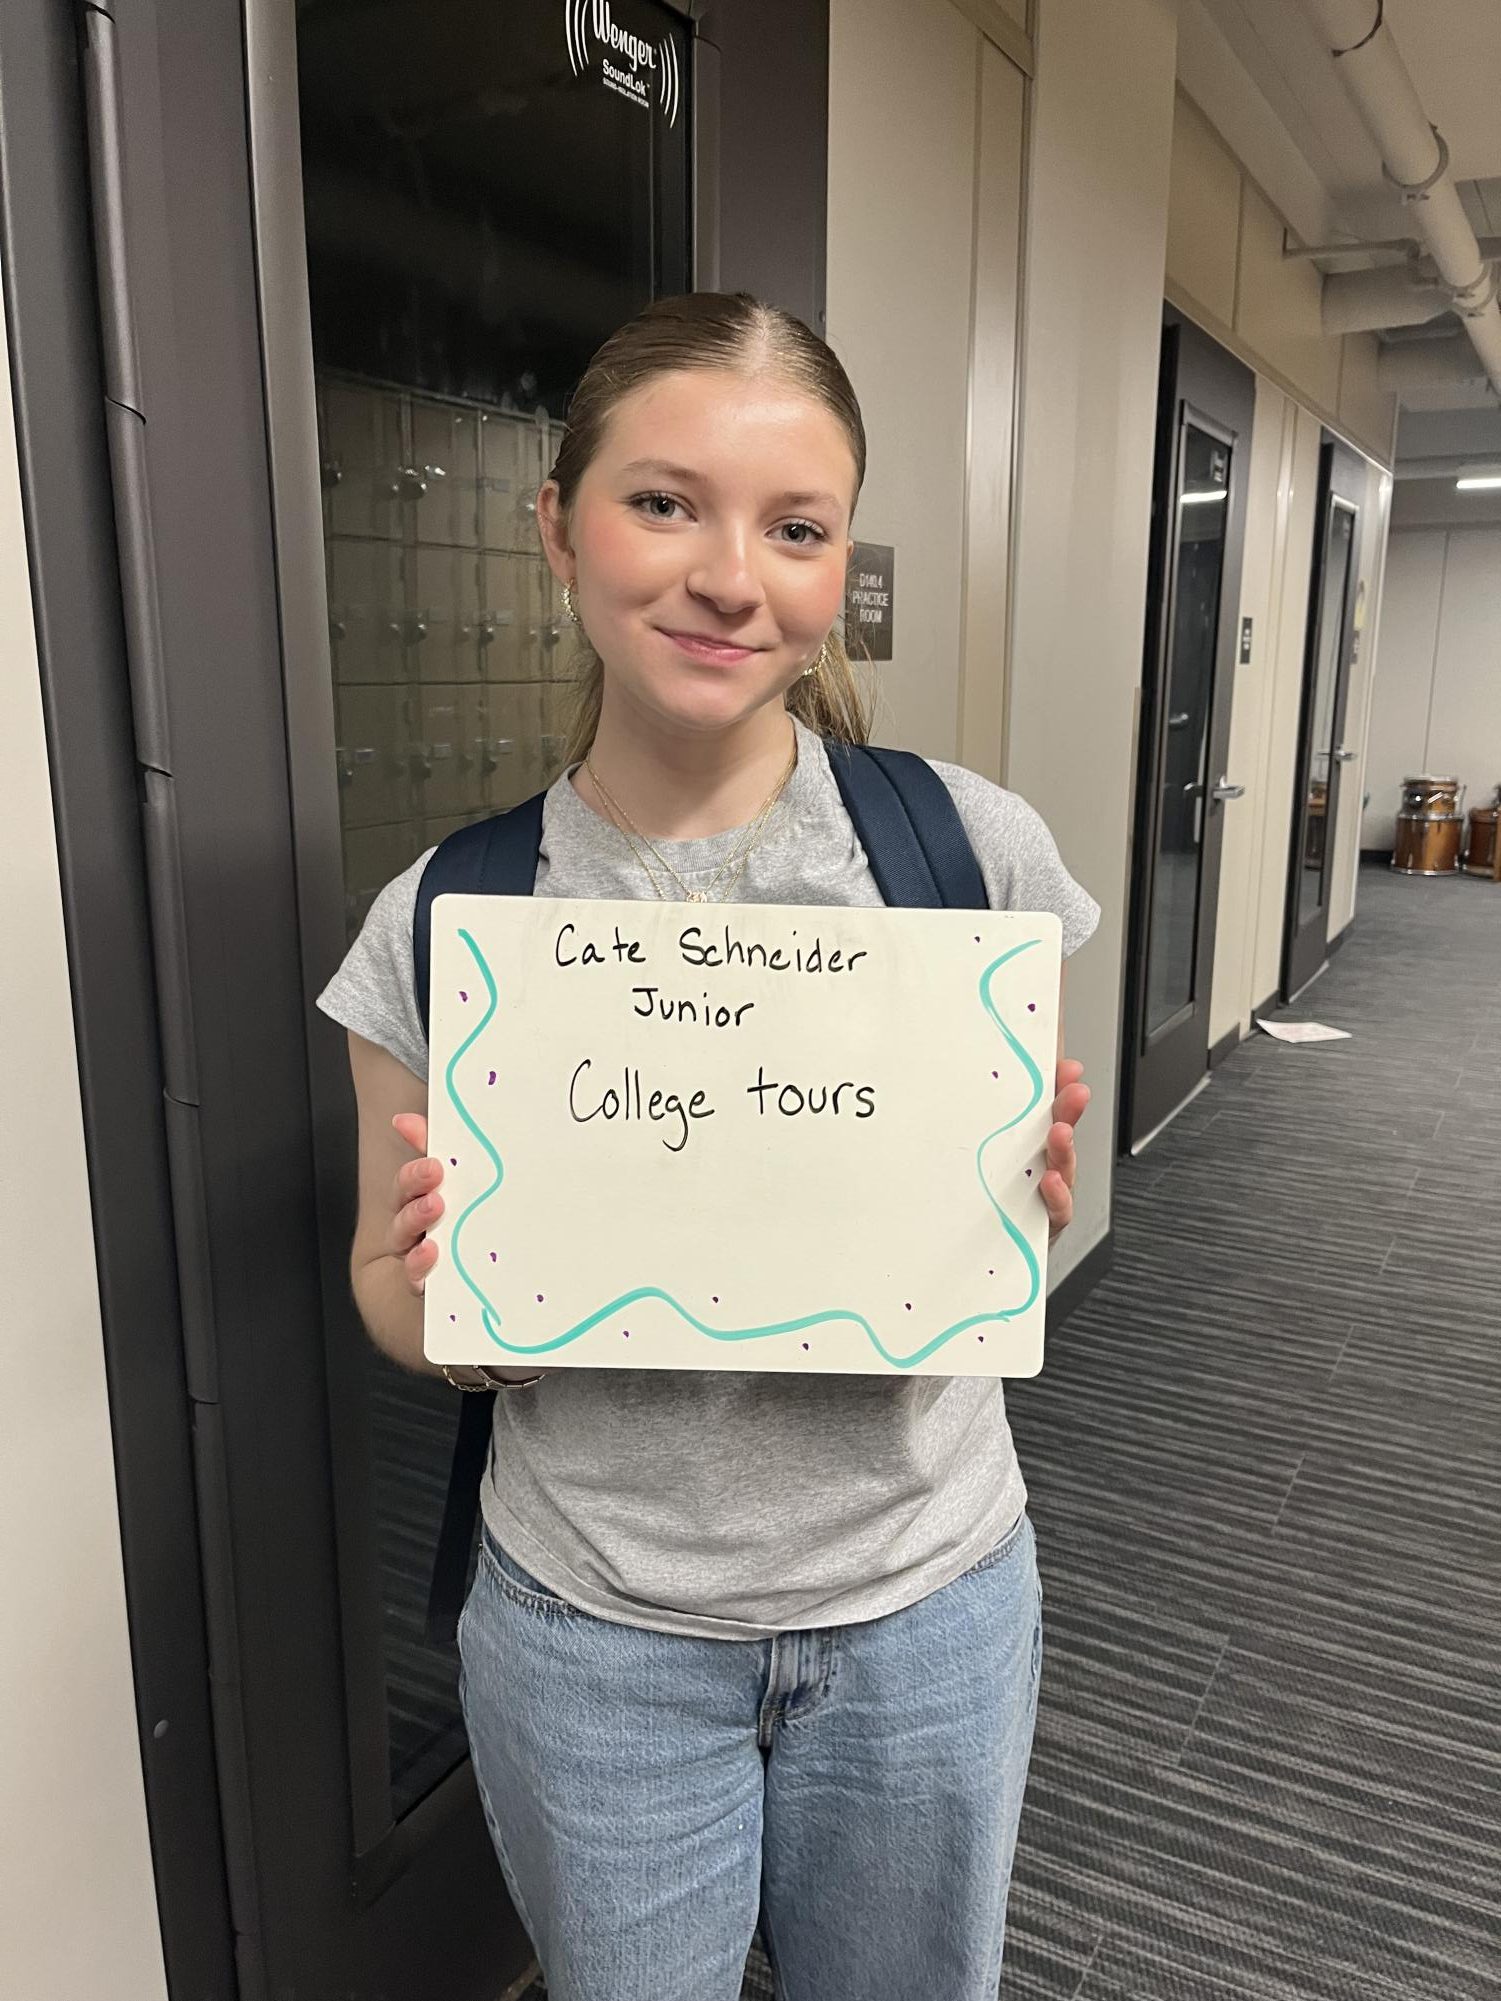 Wenger
SoundLok
SOUND-ISOLATION ROOM
D140.4
PRACTICE
ROOM
Cate Schneider
Junior
College tours